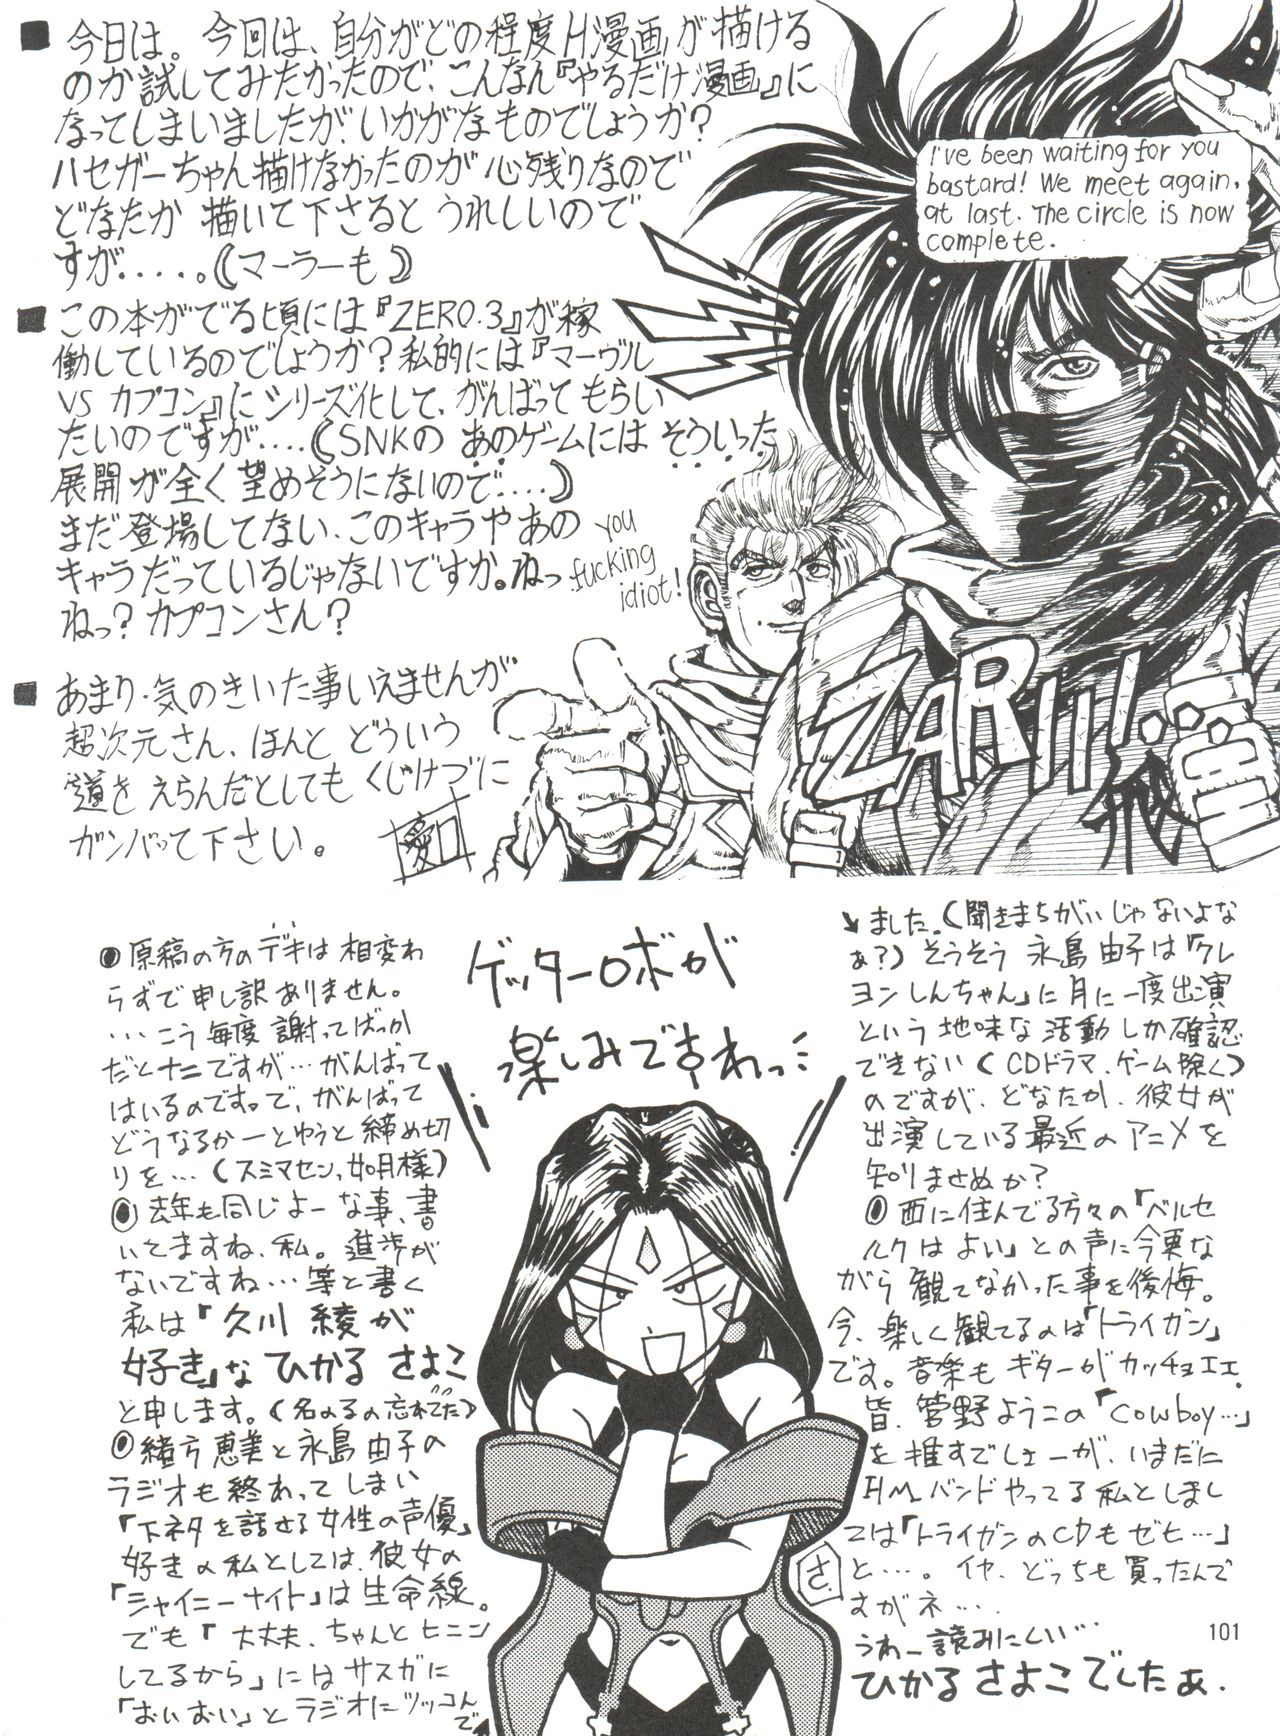 ■ 今日は。今回は、自分がどの程度H漫画が描ける
のか試してみたかったので、こんなん『やるだけ漫画』に
なってしまいましたが、いかがなものでしょうか?
ハセガーちゃん描けなかったのが心残りなので
どなたか 描いて下さると うれしいので
すが.....。(マーラーも)
■ この本がでる頃には『ZERO.3』が稼
働しているのでしょうか?私的には『マーヴル
VS カプコン』にシリーズ化して、がんばってもらい
たいのですが....(SNKの あのゲームには そういった
展開が全く望めそうにないので....)
まだ登場してない、このキャラやあの
キャラだっているじゃないですか。ねっ
ねっ?カプコンさん?
■ あまり・気のきいた事いえませんが
超次元さん、ほんと どういう
道を えらんだとしても くじけづに
ガンバって下さい。
I've been waiting for you
bastard! We meet again,
at last. The circle is now
complete.
you
fucking
idiot!
ZARIII!
飛
原稿の方のデキは相変わ
らずで申し訳ありません。
...こう毎度謝ってばっか
だとナニですが...がんばって
はいるのですっで、がんばって
どうなるかーとゆうと締め切
りを...(スミマセンッ如月様)
去年も同じよーな事、書
いてますね、私。進歩が
ないですね...等と書く
私は「久川 綾が
好き」な ひかる さよこ
と申します。(名のるの忘れてた)
緒方恵美と永島由子の
ラジオも終わってしまい
「下ネタを話せる女性の声優」
好きの私としては、彼女の
「シャイニーナイト」は生命線。
でも「大丈夫、ちゃんとヒニン
してるから」にはサスガに
「おいおい」とラジオにツッコんで
ゲッターロボが
楽しみですわっ...
さ.
ました。(聞きまちがいじゃないよな
ぁ?)そうそう 永島 由子は「クレ
ヨンしんちゃん」に月に一度出演
という地味な活動しか確認
できない(CDドラマ、ゲーム除く)
のですが、どなたか、彼女が
出演している最近のアニメを
知りませぬか?
西に住んでる方々の「ベルセ
ルクはよい」との声に今更な
がら観てなかった事を後悔。
今、楽しく観てるのは「トライガン」
です。音楽もギターがカッチョエエ.
皆、菅野ようこの「cowboy...」
を推すでしょーが、いまだに
H.M.バンドやってる私としまし
ては「トライガンのCDもぜヒ...」
と...。イヤ、どっちも買ったんで
すがネ...
うわー読みにくい...
ひかる さよこでしたぁ.
101